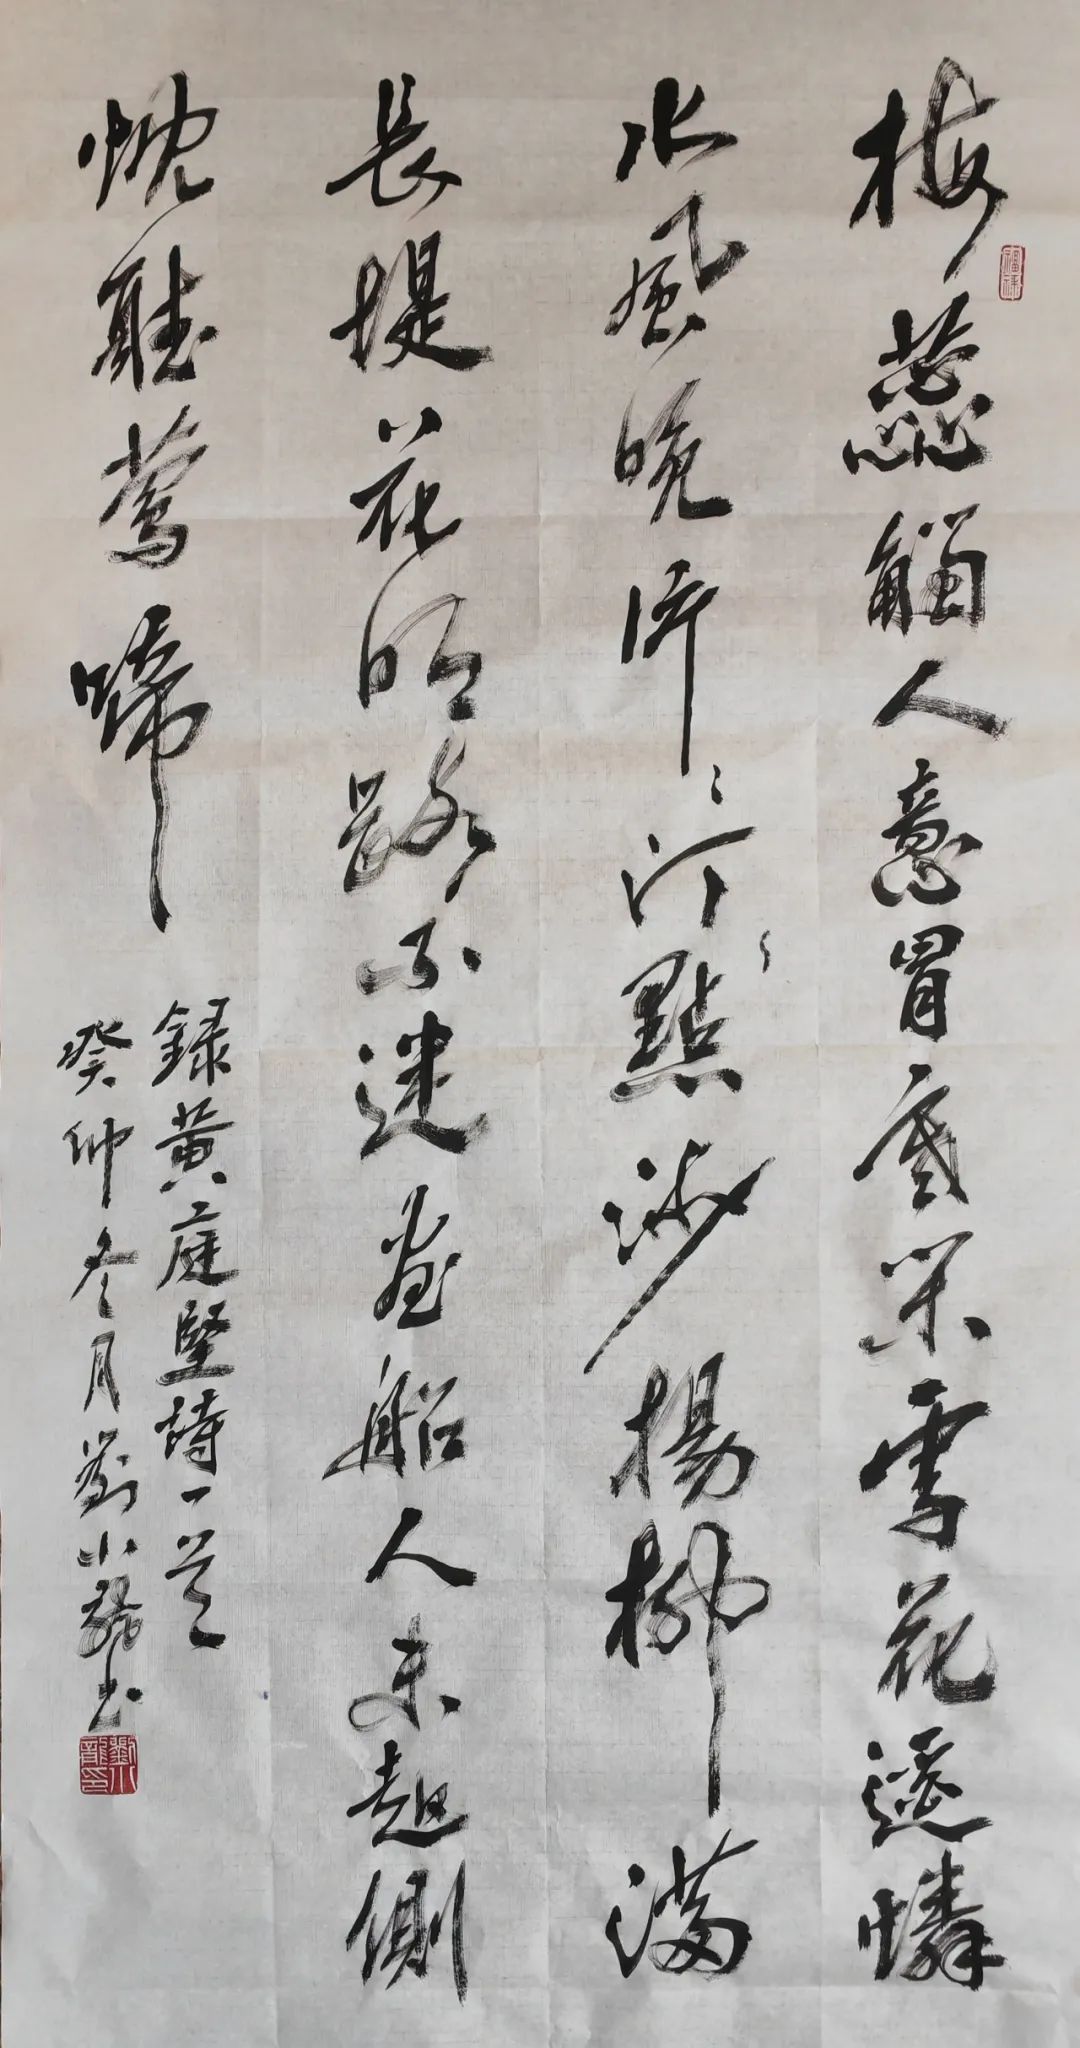 梅蕊觸人意冒寒開雪花遥憐
水風晚片〻汀點沙楊柳滿
長堤花明路不迷畫船人未起側
枕聽鶯啼
錄黃庭堅詩一首
癸卯冬月劉小龍書
劉小龍印